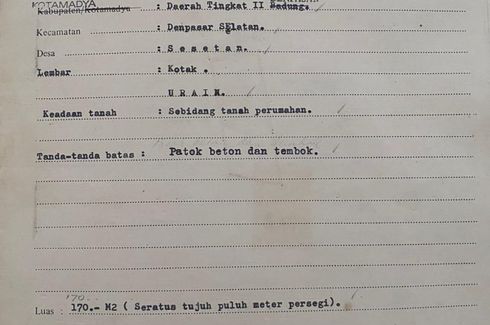 KOTAMADYA
Kabupaten/Kotamadya : Daerah Tingkat II Badung.
Kecamatan : Denpasar SElatan.
Desa : S e s e t a n.
Lembar : Kotak .
U R A I N.
Keadaan tanah : Sebidang tanah perumahan.
Tanda-tanda batas : Patok beton dan tembok.
170.-
Luas : 170.- M2 ( Seratus tujuh puluh meter persegi).